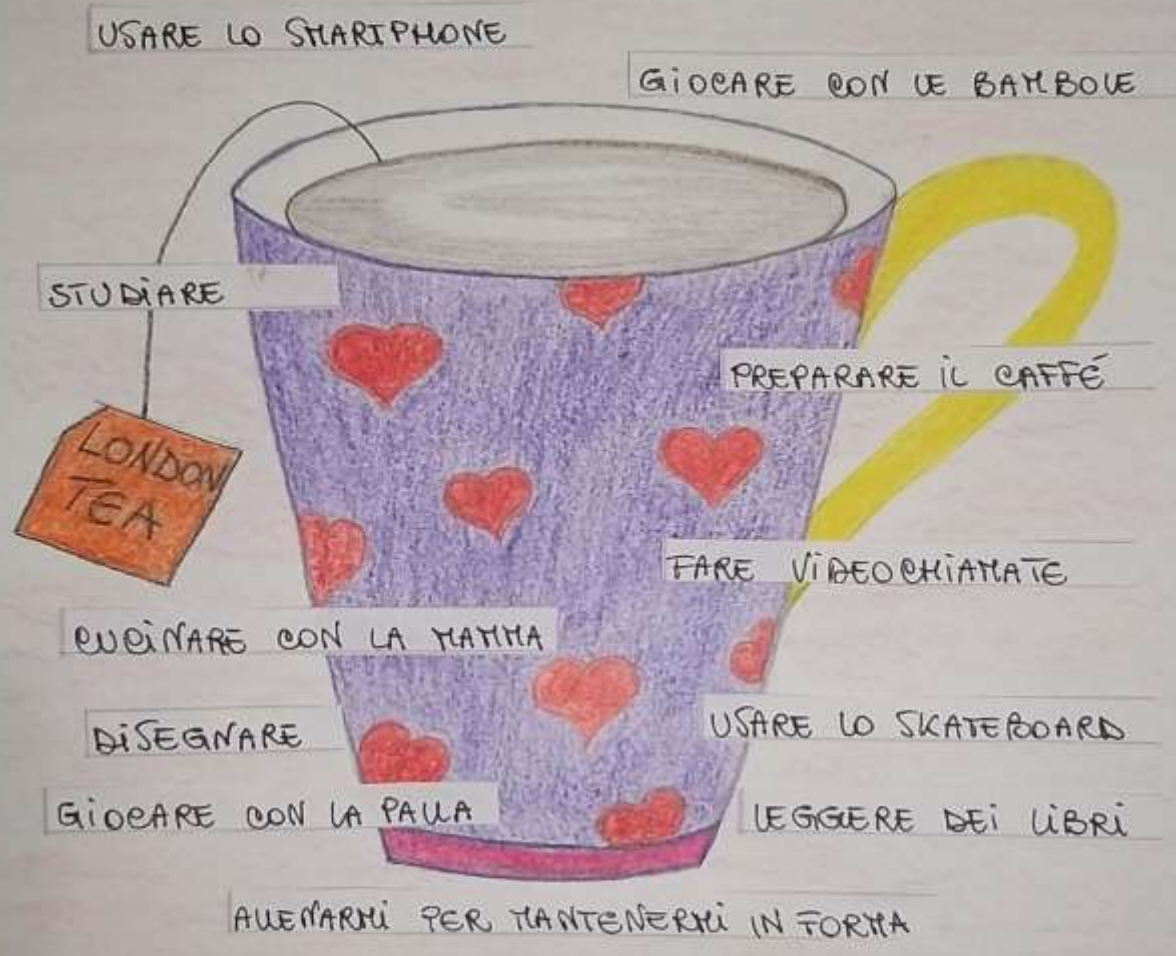 USARE LO SMARTPHONE
GIOCARE CON LE BAMBOLE
STUDIARE
PREPARARE IL CAFFÉ
LONDON
TEA
FARE VIDEOCHIAMATE
CUCINARE CON LA MAMMA
DISEGNARE
USARE LO SKATEBOARD
GIOCARE CON LA PALLA
LEGGERE DEI LIBRI
ALLENARMI PER MANTENERMI IN FORMA